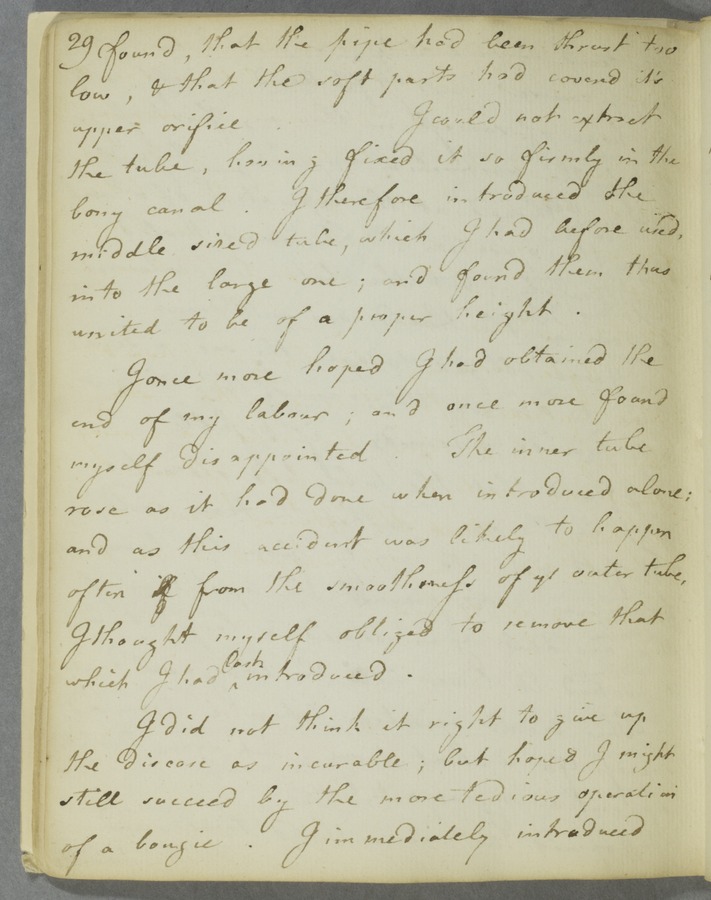 29 found, that the pipe had been thrust too
low, & that the soft parts had coverd it's
upper orifice . I could not extract
the tube, having fixed it so firmly in the
bony canal . I therefore introduced the
middle sized tube, which I had before used,
into the large one ; and found them thus
united to be of a proper height .
I once more hoped I had obtained the
end of my labour ; and once more found
myself disappointed . The inner tube
rose as it had done when introduced alone;
and as this accident was likely to happen
often from the smoothness of yt outer tube,
I thought myself obliged to remove that
which I had last introduced .
I did not think it right to give up
the disease as incurable ; but hoped I might
still succeed by the more tedious operation
of a bougie . I immediately introduced